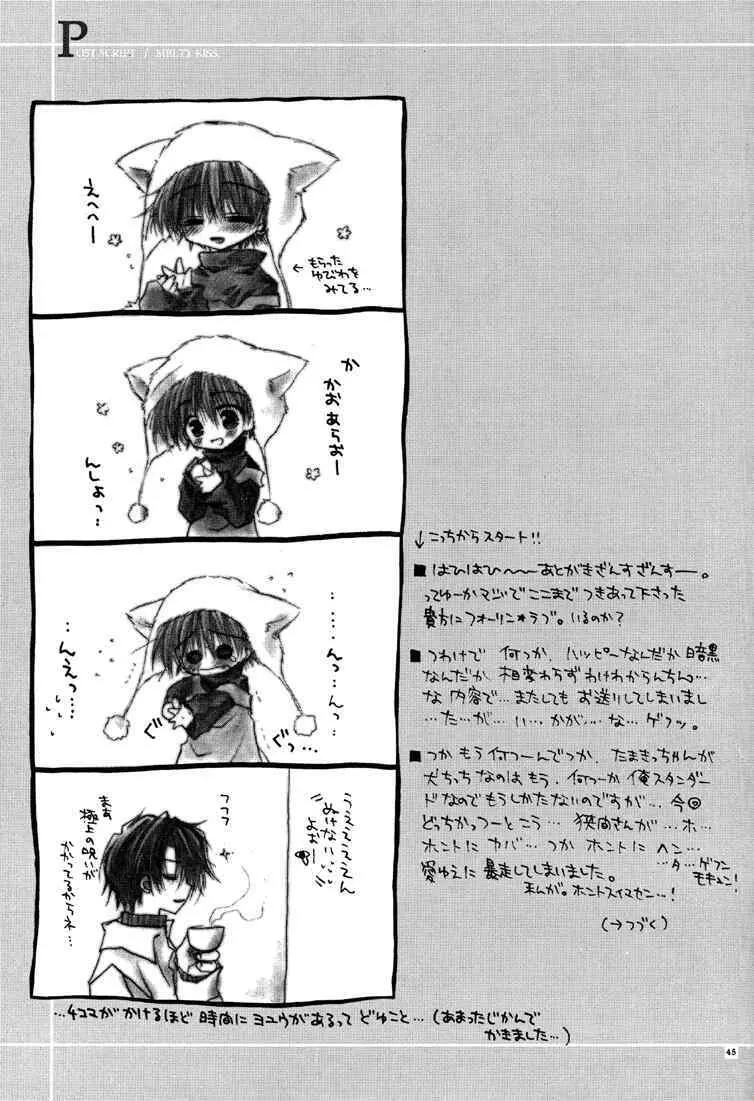 POST SCRIPT / MELTY KISS
えへへー
←もらった
ゆびわを
みてる…
か
かおあらおー
んしょっ…
……んっ…んっ…
…んえっ…
ぐぐっ…
うええええん
ぬけない…
よおー
フフフ
まぁ
極上の呪いが
かかってるからネ…
…4コマがかけるほど 時間に ヨユウがあるって どゆこと…(あまったじかんで
かきました…)
↓こっちからスタート!!
■はひはひ〜〜あとがきざんすざんすー。
ってゆーかマジでここまで つきあって下さった
貴方にフォーリン★ラブ。いるのか?
■つわけで 何つか、ハッピーなんだか暗黒
なんだか相変わらず わけわからんちんっ…
な 内容で…またしても お送りしてしまいまし
…た…が… い…かが…な…ゲフッ。
■つか もう何つーんでつか、たまきっちゃんが
犬ちっち なのはもう、何つーか 俺スタンダー
ドなのでもうしかたないのですが… 今回
どっちかっつーと こう… 狭間さんが …ホ…
ホントに ヤバ…つか ホントに ヘン…
…タ…ゲフン
モキュン!
愛ゆえに 暴走してしまいました。
私が。ホントスイマセン…!
(→つづく)
45